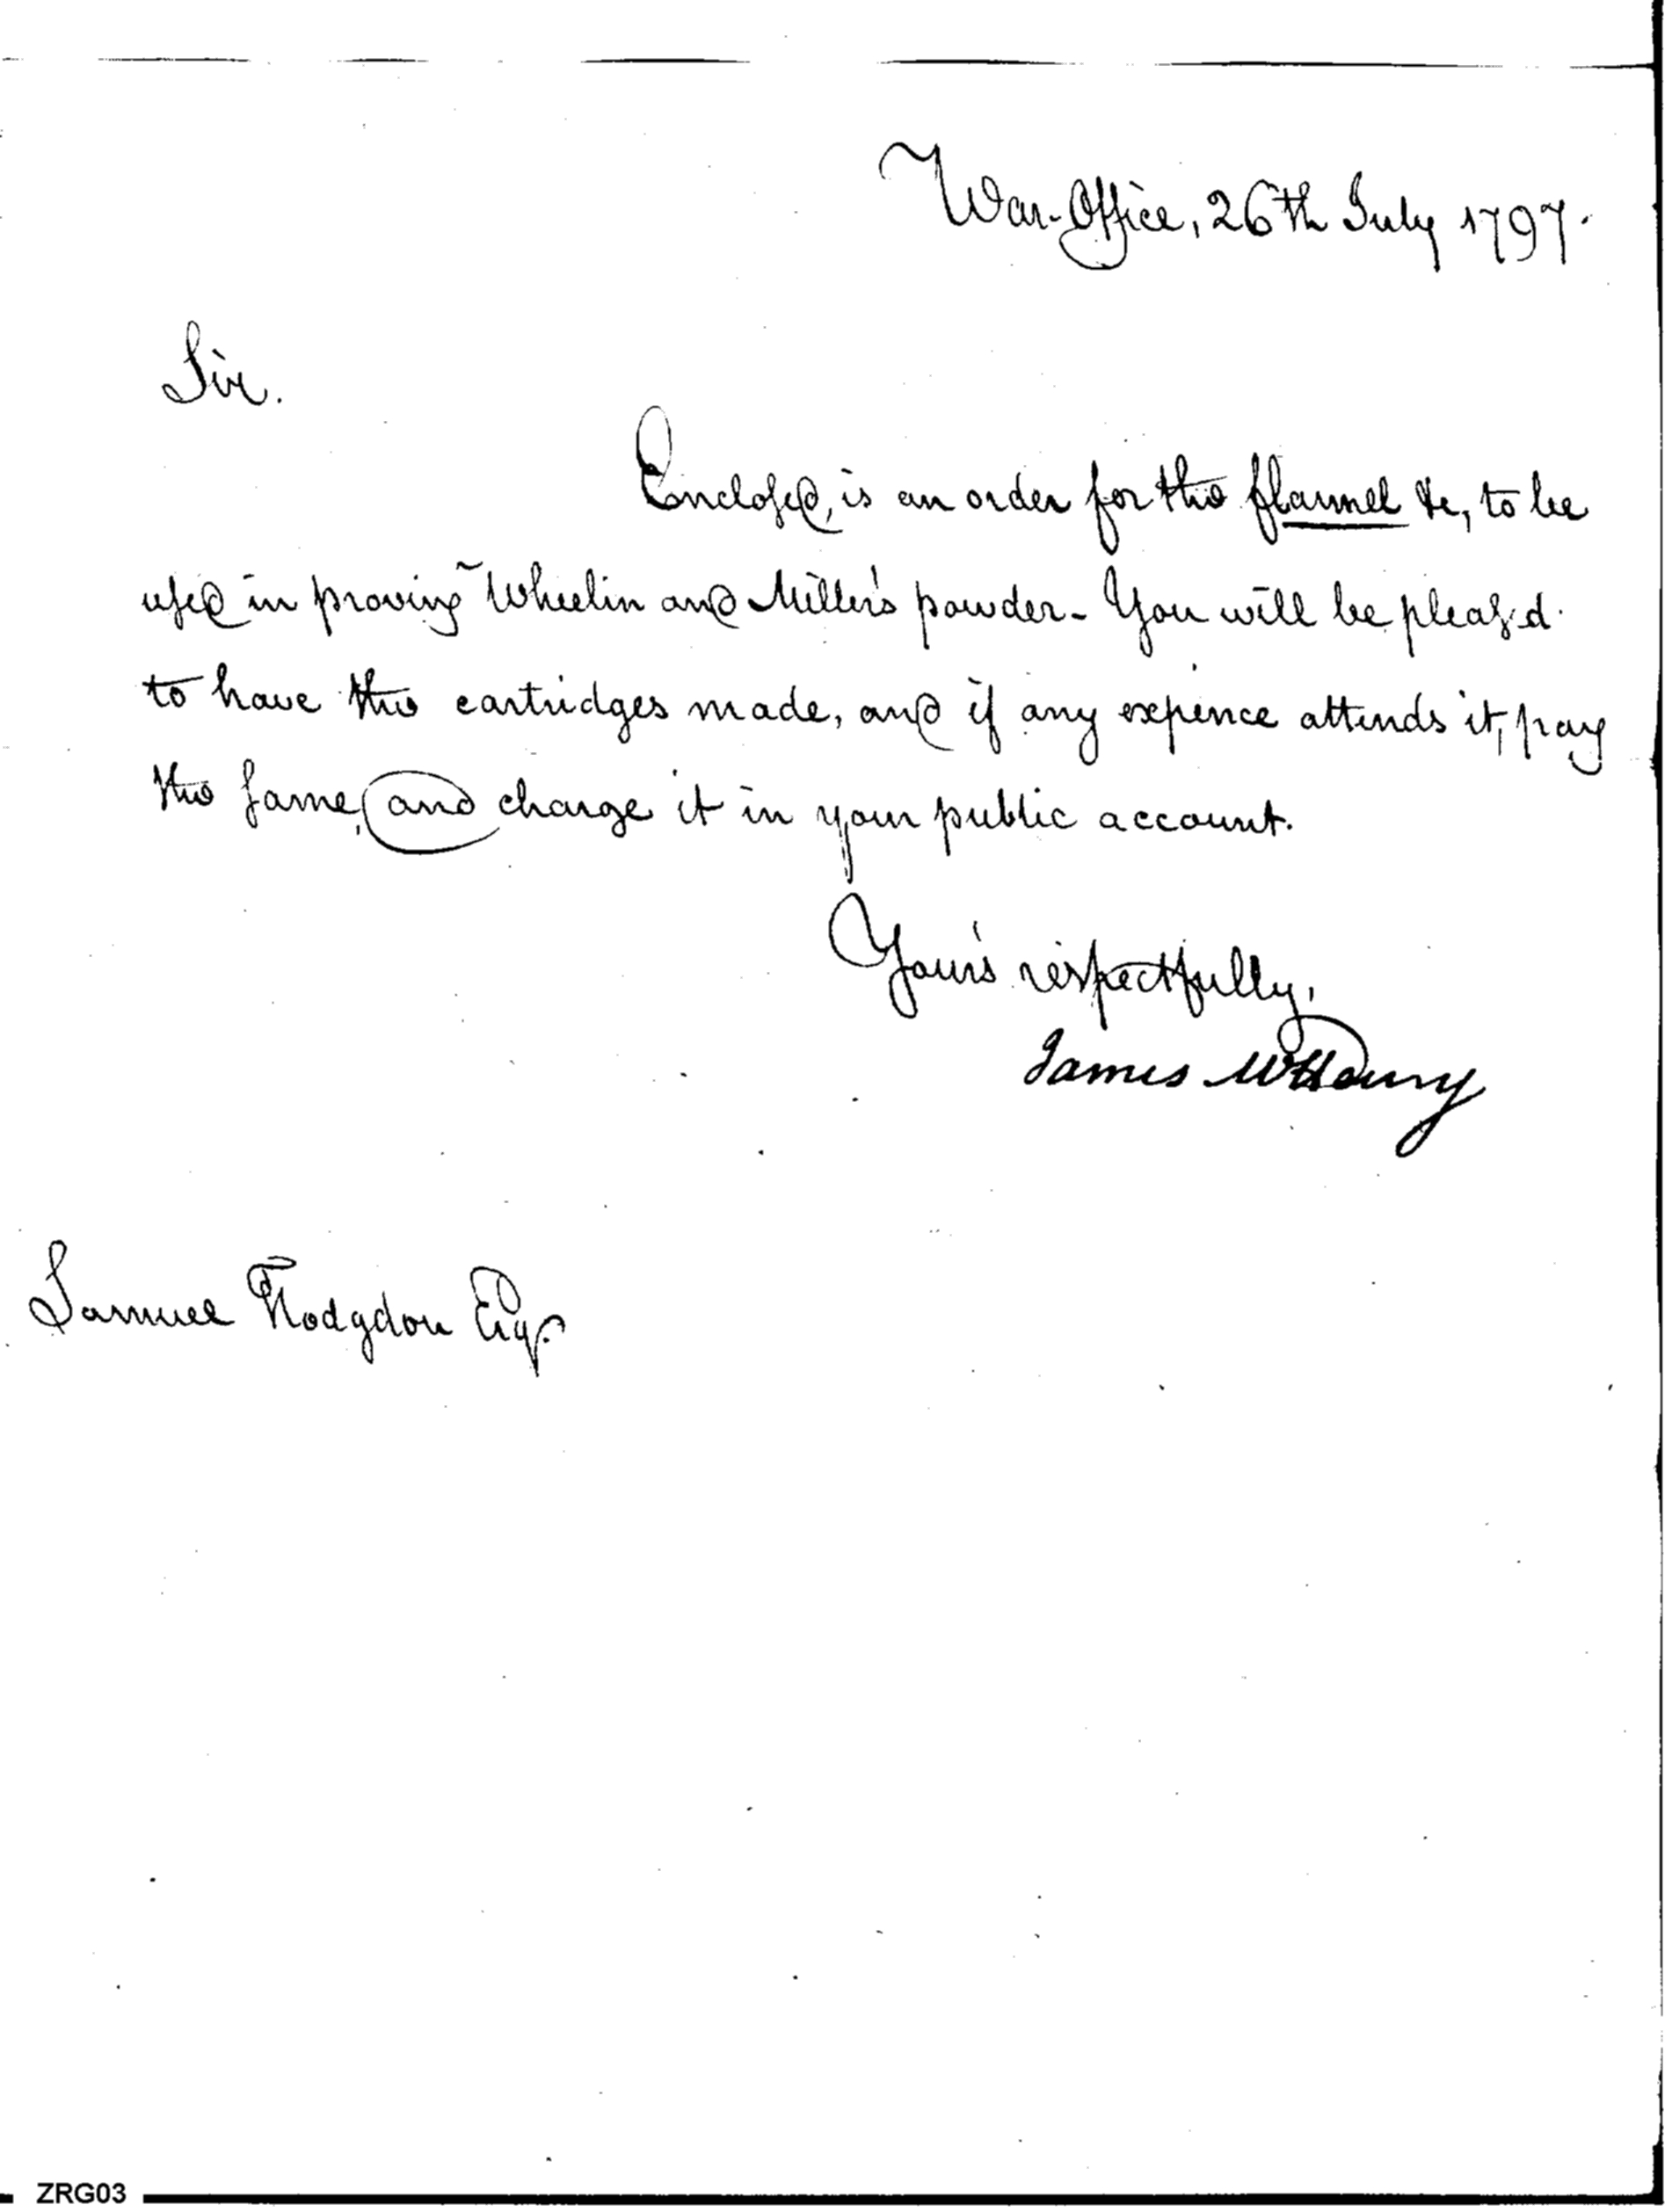 War-Office, 26th July 1797.
Sir.
Enclosed, is an order for the flannel &c, to be
used in proving Wheelin and Miller's powder - You will be pleas'd
to have the cartridges made, and if any expence attends it, pay
the same, and charge it in your public account.
Your's respectfully,
James McHenry
Samuel Hodgdon Esqr.
ZRG03